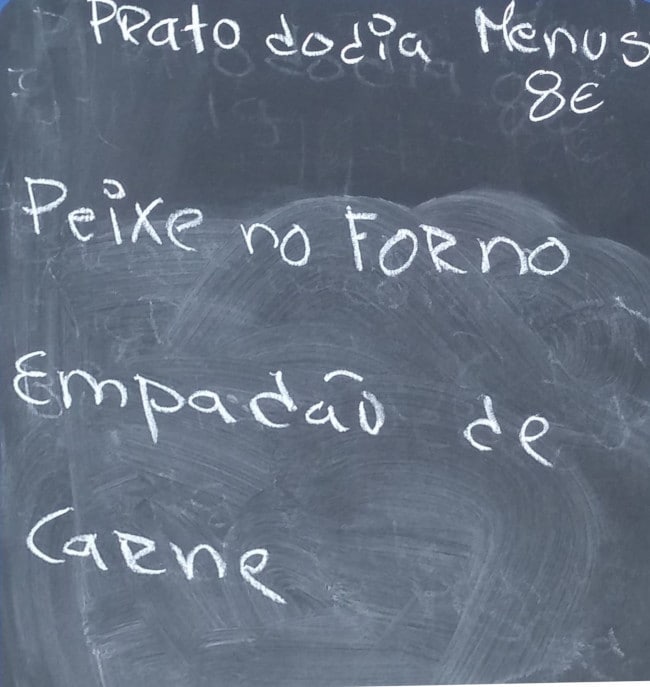 Prato do dia Menus
8€
Peixe no Forno
Empadão de
Carne